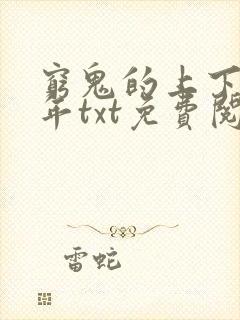 窮鬼的上下
年txt免費閱
雷蛇